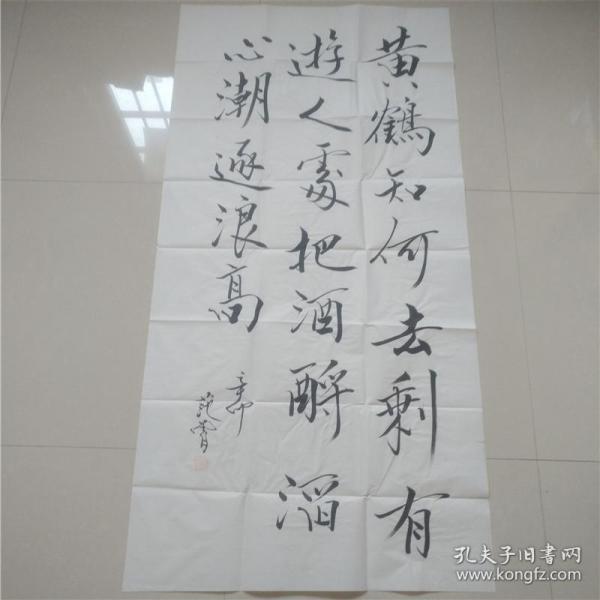 黄鶴知何去剩有
遊人處把酒酹滔
心潮逐浪高
辛卯
孔夫子旧書网
www.kongfz.com